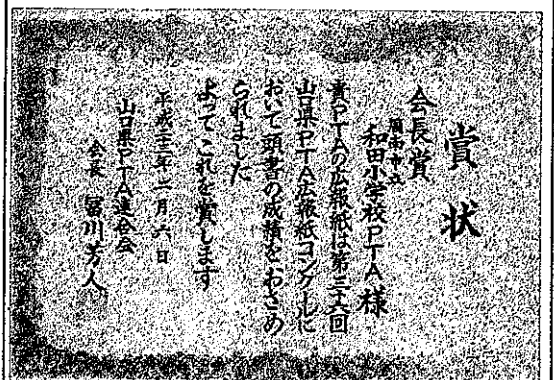 賞状
会長賞
周南市立
和田小学校PTA様
貴PTAの広報紙は第三十六回
山口県PTA広報紙コンクールに
おいて頭書の成績をおさめ
られました
よってこれを賞します
平成二十二年二月六日
山口県PTA連合会
会長 冨川芳人